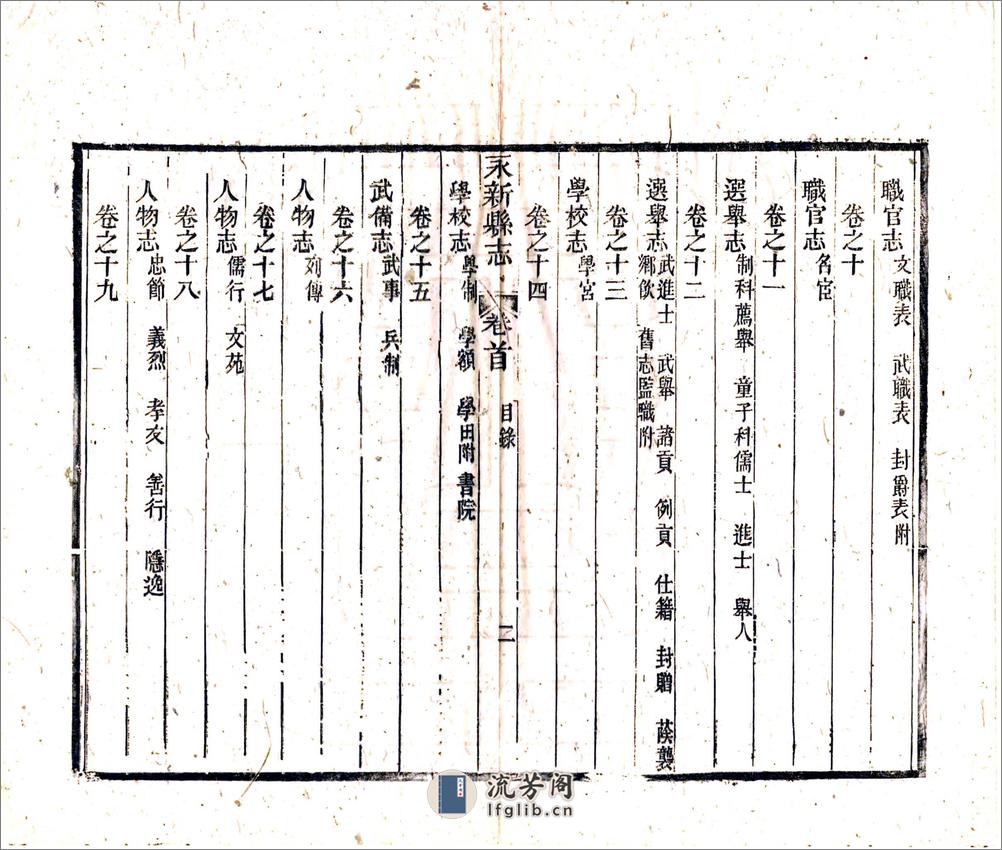 職官志 文職表 武職表 封爵表附
卷之十
職官志 名宦
卷之十一
選舉志 制科薦舉 童子科儒士 進士 舉人
卷之十二
選舉志 武進士 武舉 諸貢 例貢 仕籍 封贈 蔭襲
鄉飲 舊志監職附
卷之十三
學校志 學宮
卷之十四
永新縣志 卷首 目錄 二
學校志 學制 學額 學田附 書院
卷之十五
武備志 武事 兵制
卷之十六
人物志 列傳
卷之十七
人物志 儒行 文苑
卷之十八
人物志 忠節 義烈 孝友 善行 隱逸
卷之十九
流芳阁
lfglib.cn